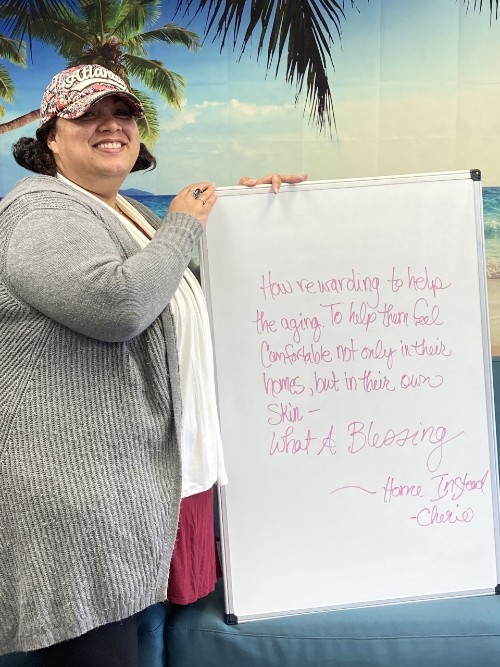 Atlanta
How rewarding to help
the aging. To help them feel
Comfortable not only in their
homes, but in their own
skin –
What A Blessing
~ Home Instead
- Cherie